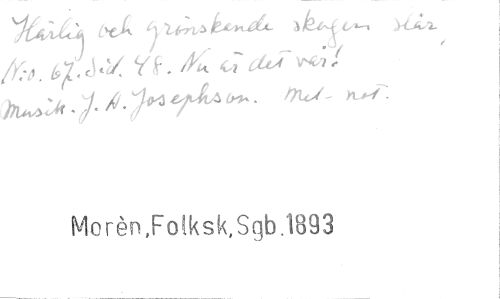 Härlig och grönskande skogen står,
N:o. 67. Sid. 48. Nu är det vår!
Musik. J. A. Josephson. Mel-not.
Morèn,Folksk,Sgb.1893